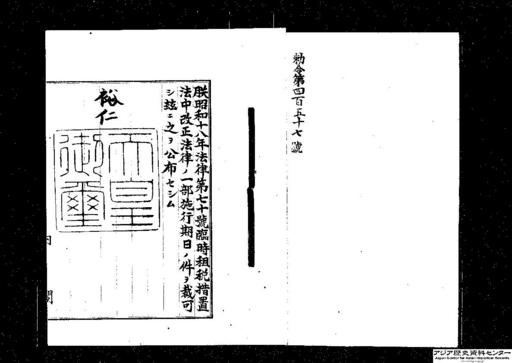 勅令第四百五十七號
朕昭和十八年法律第七十號臨時租税措置
法中改正法律ノ一部施行期日ノ件ヲ裁可
シ玆ニ之ヲ公布セシム
裕仁
天皇
御璽
内閣
アジア歴史資料センター
Japan Center for Asian Historical Records